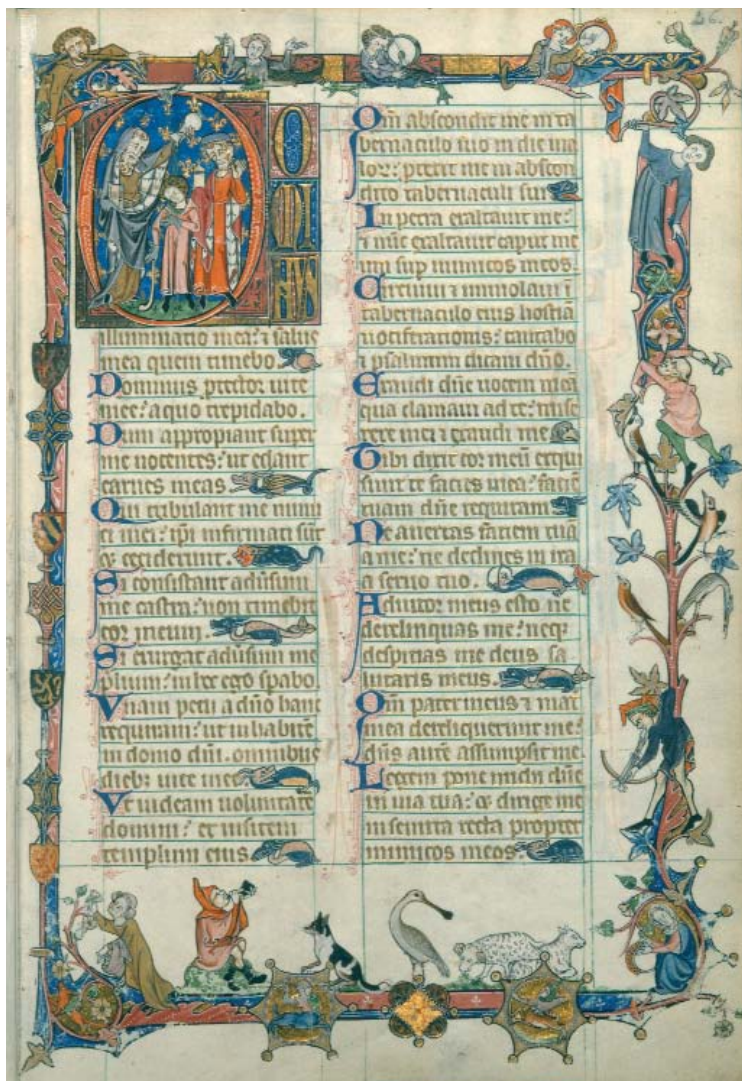 DOMINVS
illuminatio mea: et salus
mea quem timebo.
Dominus ptector uite
mee: a quo trepidabo.
Dum appropiant super
me nocentes: ut edant
carnes meas
Qui tribulant me inimi
ci mei: ipi infirmati sunt
& ceciderunt.
Si consistant aduersum
me castra: non timebit
cor meum.
Si exurgat aduersum me
plium: in hoc ego spabo.
Vnam petii a dno hanc
requiram: ut inhabitem
in domo dni. omnibus
dieb; uite mee.
Vt uideam uoluntatē
domini: et uisitem
templum eius
Qm abscondit me in ta
bernaculo suo in die ma
lorꝝ: ptexit me in abscon
dito tabernaculi sui
In petra exaltauit me:
⁊ nūc exaltauit caput me
um sup inimicos meos.
Circuiui ⁊ immolaui ī
tabernaculo eius hostiā
uociferationis: cantabo
⁊ psalmum dicam dno.
Exaudi dñe uocem meā
qua clamaui ad te: mise
rere mei ⁊ exaudi me
Tibi dixit cor meū exqui
siuit te facies mea: faciē
tuam dñe requiram
Ne auertas faciem tuā
a me: ne declines in ira
a seruo tuo.
Adiutor meus esto ne
derelinquas me: neq
despicias me deus sa
lutaris meus.
Qm pater meus ⁊ mat
mea dereliquerunt me:
dñs autē assumpsit me.
Legem pone michi dñe
in uia tua: & dirige me
in semita recta propter
inimicos meos